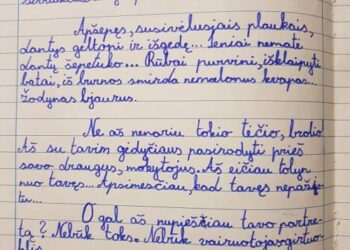 Apšepęs, susivėlusiais plaukais,
dantys geltoni ir išgedę... Seniai nematė
dantų šepetuko... Rūbai purvini, išklaipyti
batai, iš burnos smirda nemalonus kvapas...
žodynas bjaurus.
Ne aš nenoriu tokio tėčio, brolio.
Aš su tavim gėdyčiaus pasirodyti prieš
savo draugus, mokytojus. Aš eičiau tolyn
nuo tavęs... Apsimesčiau, kad tavęs nepažįs-
tu...
O gal aš nupieščiau tavo portre-
tą? Nebūk toks. Nebūk